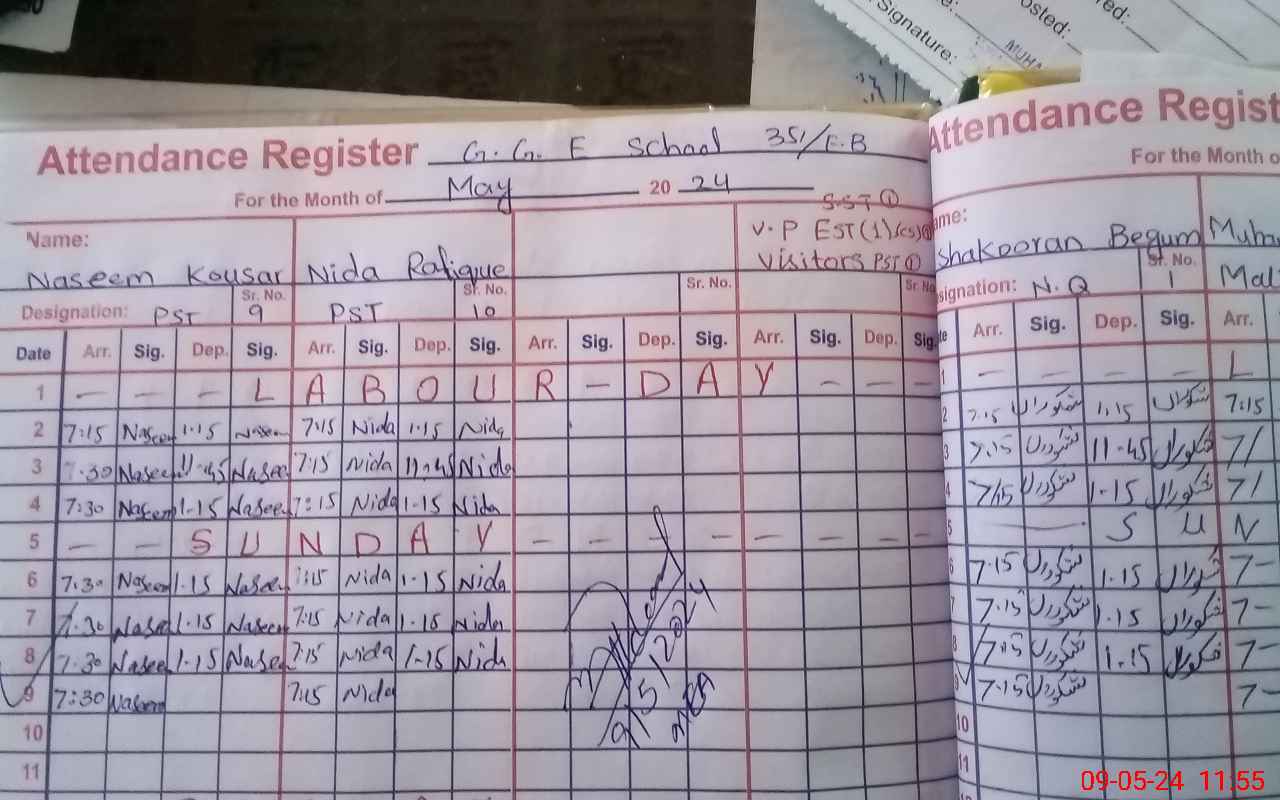 osted:
red:
Signature:
MUHA
Attendance Register G. G. E School 351/E.B
For the Month of May 20 24
S.ST ①
V.P EST(1)/(cs)①
Visitors PST①
Name:
Naseem Kousar Nida Rafique
Designation: PST Sr. No. 9 PST Sr. No. 10 Sr. No. Sr. No
Date Arr. Sig. Dep. Sig. Arr. Sig. Dep. Sig. Arr. Sig. Dep. Sig. Arr. Sig. Dep. Sig.
1 — — — L A B O U R — D A Y — — —
2 7:15 Naseem 1.15 Naseem 7:15 Nida 1.15 Nida
3 7.30 Naseem 11-45 Naseem 7:15 Nida 11-45 Nida
4 7:30 Naseem 1-15 Naseem 7:15 Nida 1-15 Nida
5 — — S U N D A Y — — — — — — —
6 7.30 Naseem 1-15 Naseem 7:15 Nida 1-15 Nida
7 7.30 Naseem 1.15 Naseem 7:15 Nida 1-15 Nida
8 7.30 Naseem 1-15 Naseem 7:15 Nida 1-15 Nida
9 7:30 Naseem 7:15 Nida
10
11
9/5/2024
MEA
Attendance Regist
For the Month o
ame:
Shakooran Begum Muha
signation: N.Q Sr. No. 1 Mal
te Arr. Sig. Dep. Sig. Arr.
1 — — — — L
2 7.15 شکوراں 1.15 شکوراں 7:15
3 7.15 شکوراں 11-45 شکوراں 7/
4 7/15 شکوراں 1-15 شکوراں 7/
5 — S U N
6 7.15 شکوراں 1.15 شکوراں 7-
7 7.15 شکوراں 1.15 شکوراں 7-
8 7.15 شکوراں 1.15 شکوراں 7-
9 7.15 شکوراں 7-
10
11
09-05-24 11:55